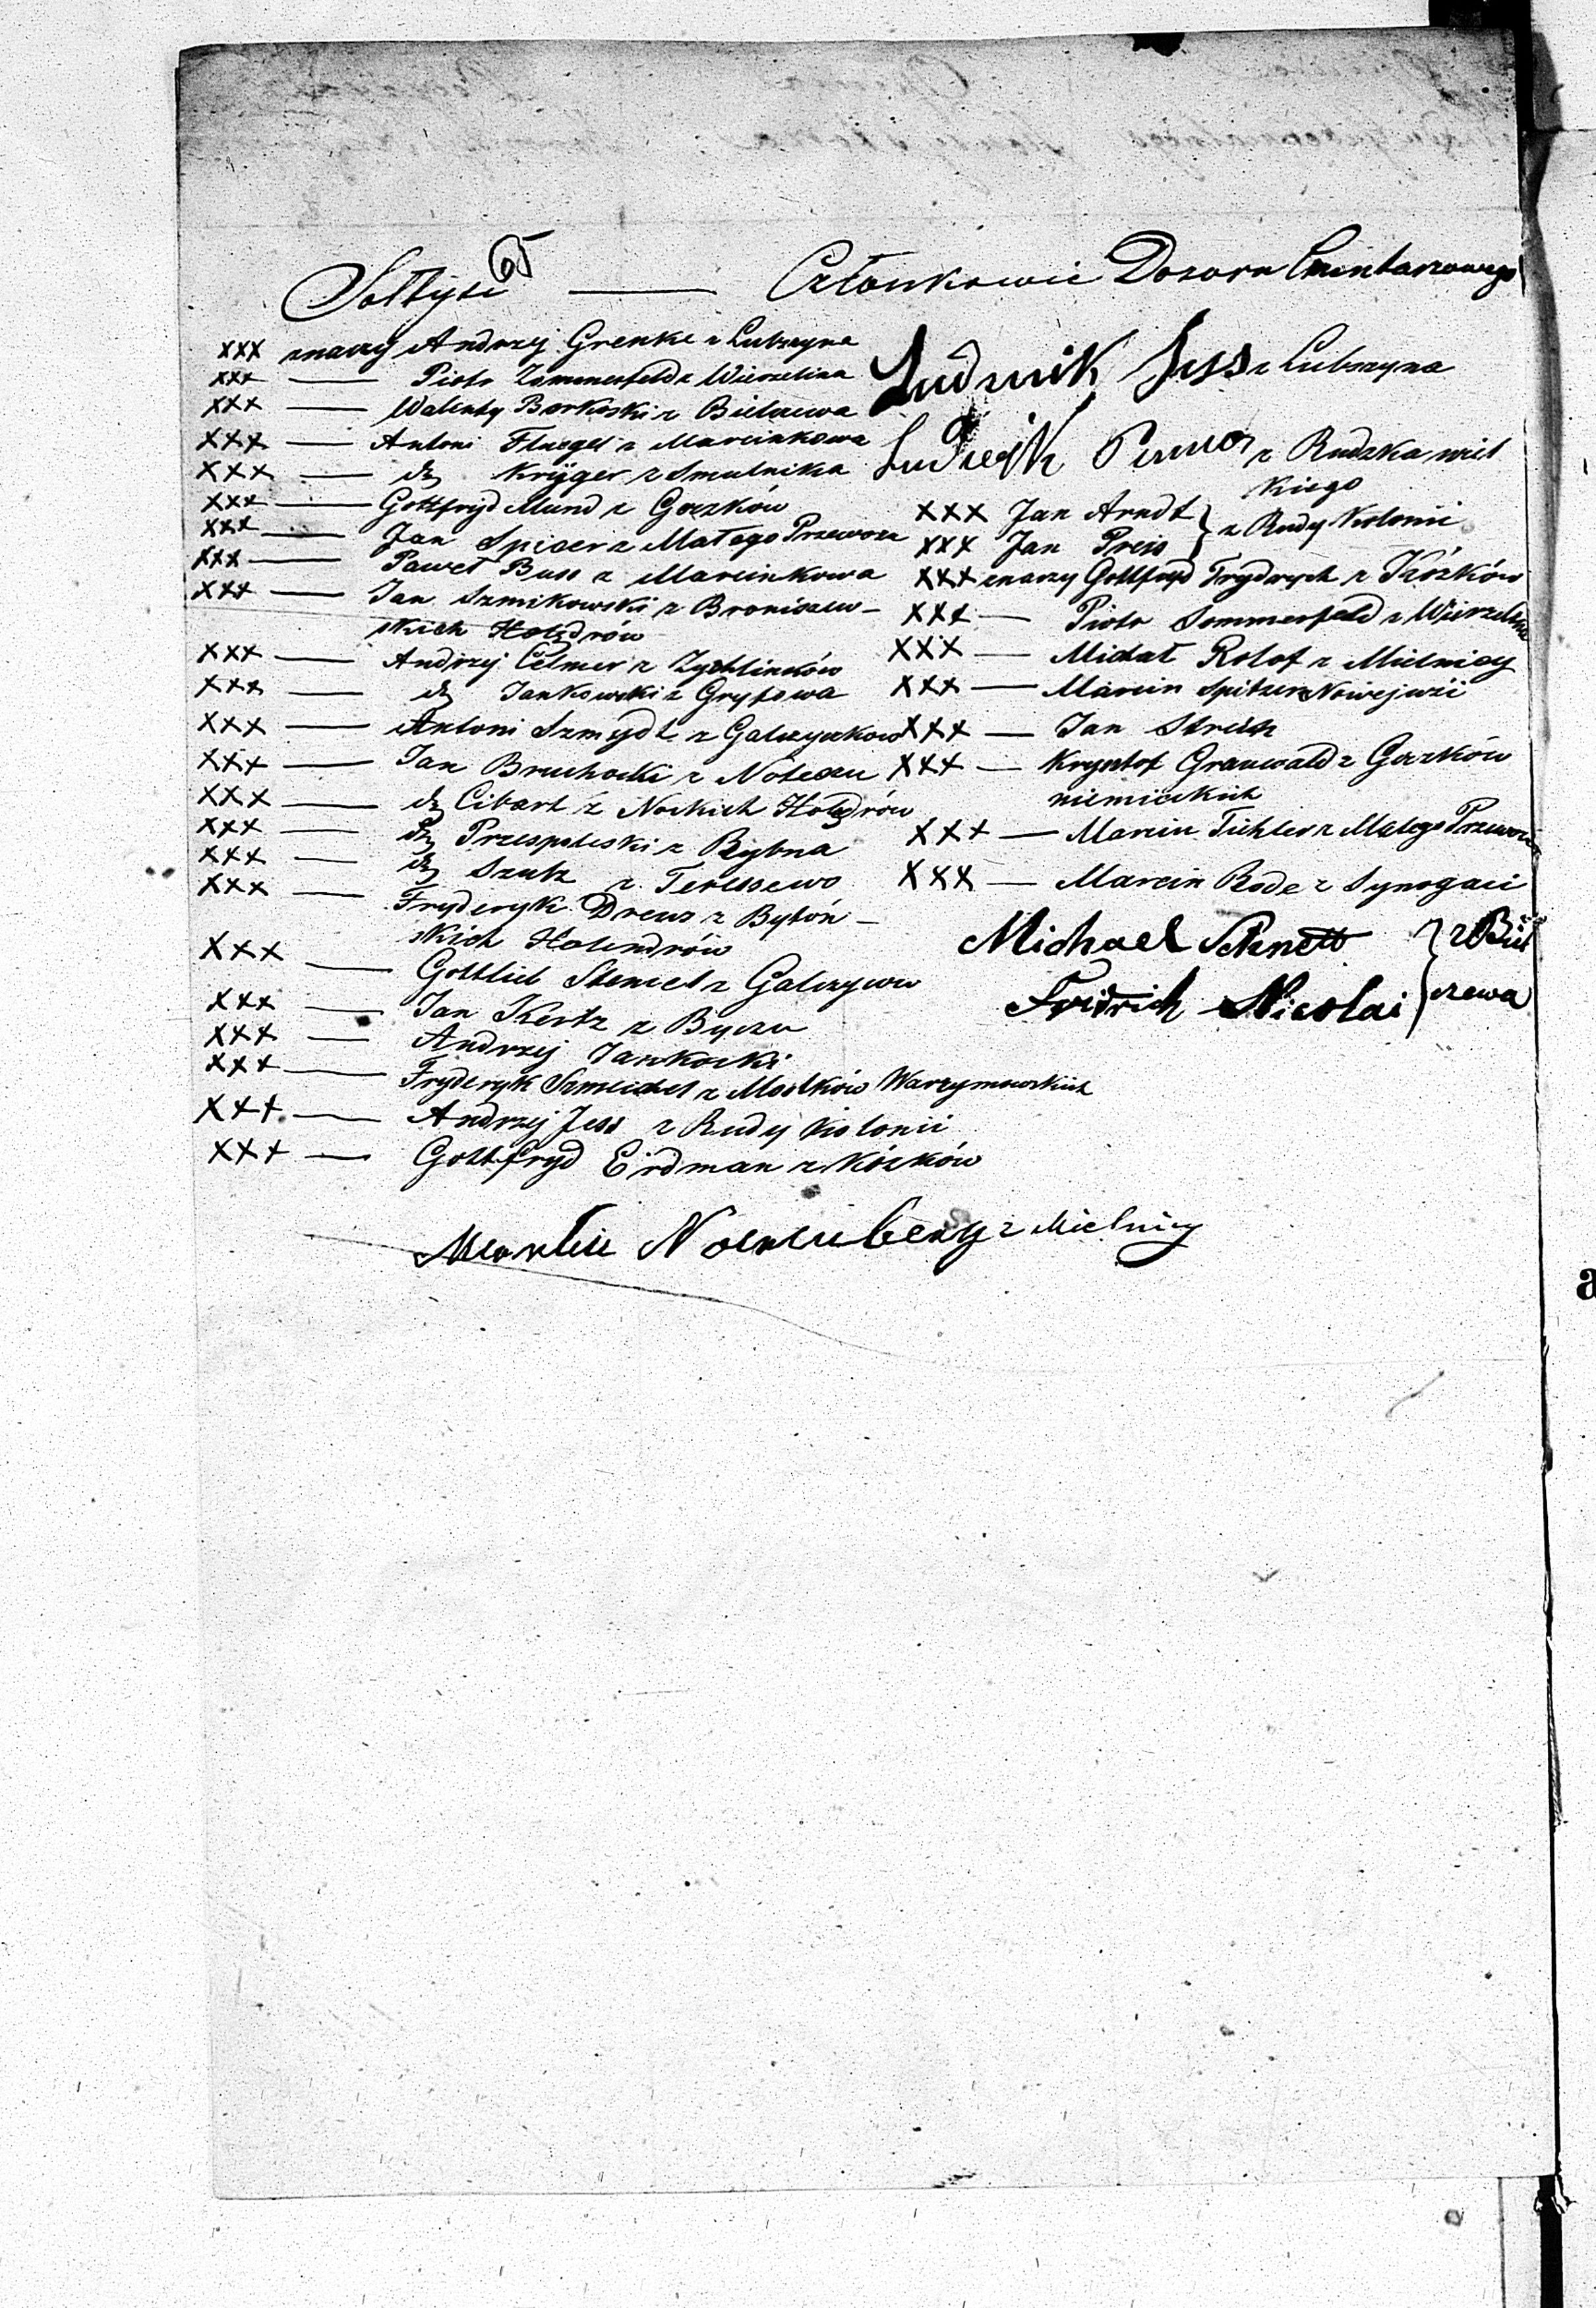 65
Sołtysi — Członkowie Dozoru Cmentarzowego
xxx znaczy Andrzej Grenke z Lubszyna
xxx — Piotr Zommerfeld z Wierzelina
xxx — Walenty Borkoski z Bielaewa
xxx — Antoni Fluegel z Marcinkowa
xxx — dº Kryger z Smulnika
xxx — Gottfryd Mund z Gorzków
xxx — Jan Spicer z Małego Przewozu
xxx — Paweł Buss z Marcinkowa
xxx — Jan Szmikowski z Broniszew-
skich Holędrów
xxx — Andrzej Celmer z Zychlinków
xxx — dº Jankowski z Grytowa
xxx — Antoni Szmydt z Galczyczkow
xxx — Jan Bruchocki z Noteczu
xxx — dº Cibart z Nockich Holędrów
xxx — dº Przespoleski z Bytna
xxx — dº Szulz z Teressewo
xxx — Fryderyk Dreuz z Bytoń-
skich Holendrów
xxx — Gottlieb Stencel z Galczyewa
xxx — Jan Kertz z Byczu
xxx — Andrzej Jankoski
xxx — Fryderyk Szmeichel z Mostków Warzymowskich
xxx — Andrzej Jess z Rudy Kolonii
xxx — Gottfryd Erdman z Kózków
z Mielnicy
Ludwik Jess z Lubszyna
Ludwik z Rudzka wiel
kiego
xxx Jan Arndt } z Rudy Kolonii
xxx Jan Preis
xxx znaczy Gottfryd Frydrych z Kózków
xxx — Piotr Sommerfeld z Wierzelina
xxx — Michał Rolof z Mielnicy
xxx — Marcin Spitzer z Nowejwsi
xxx — Jan
xxx — Krysztof Grauwald z Gorzków
niemieckich
xxx — Marcin Tichler z Malego Przewozu
xxx — Marcin Rode z Synogaci
Michael } z Biel
Fridrich Nicolai czewa